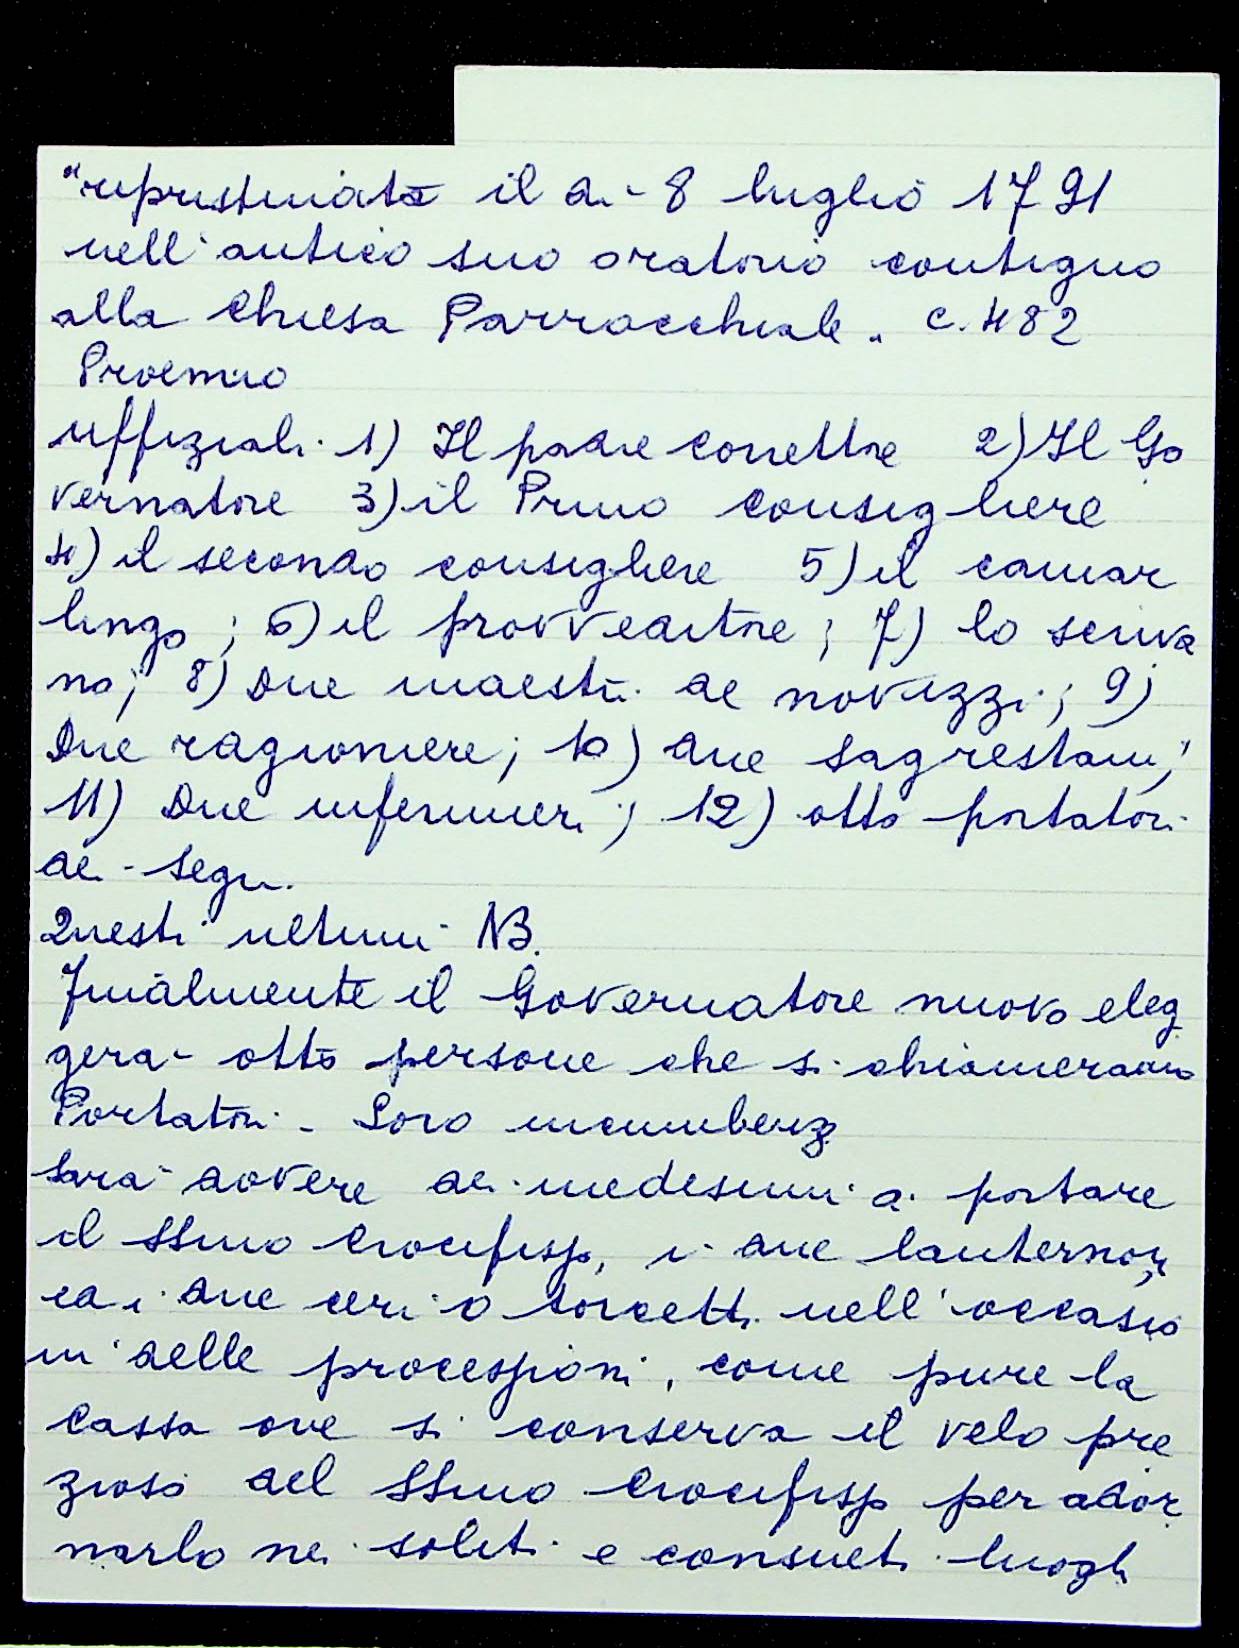 "ripristinata il dì 8 luglio 1791
nell'antico suo oratorio contiguo
alla Chiesa Parrocchiale". c. 482
Proemio
uffiziali. 1) Il padre correttore 2) Il Go
vernatore 3) il Primo consigliere
4) il secondo consigliere 5) il camar
lingo; 6) il provveditore; 7) lo scriva
no; 8) Due maestri de novizzi; 9)
Due ragioniere; 10) due sagrestani;
11) Due infermieri; 12) otto portatori
dei segni.
Questi ultimi NB.
Finalmente il Governatore nuovo eleg
gerà otto persone che si chiameranno
Portatori - Loro incumbenz
sarà dovere dei medesimi di portare
il SSmo Crocifisso, i due lanternoni,
ed i due ceri o torcetti nell'occasio
ni delle processioni, come pure la
cassa ove si conserva il velo pre
zioso del SSmo Crocifisso per ador
narlo nei soliti e consueti luoghi